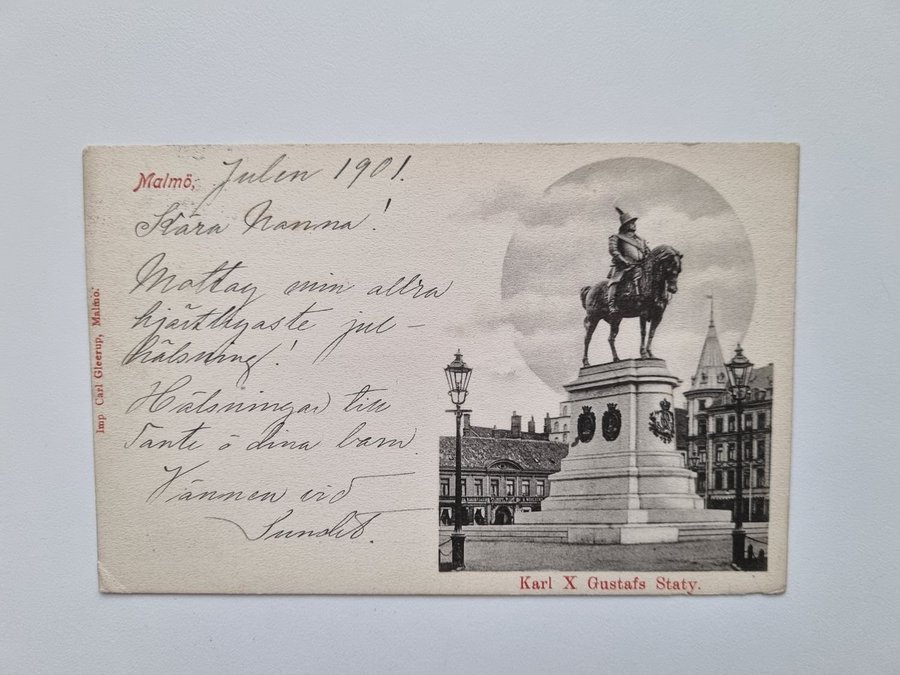 Malmö, Julen 1901.
Kära Nanna!
Mottag min allra
hjärtligaste jul-
hälsning!
Hälsningar till
Tante o dina barn.
Vännen vid
Sundet.
Imp. Carl Gleerup, Malmö.
Karl X Gustafs Staty.